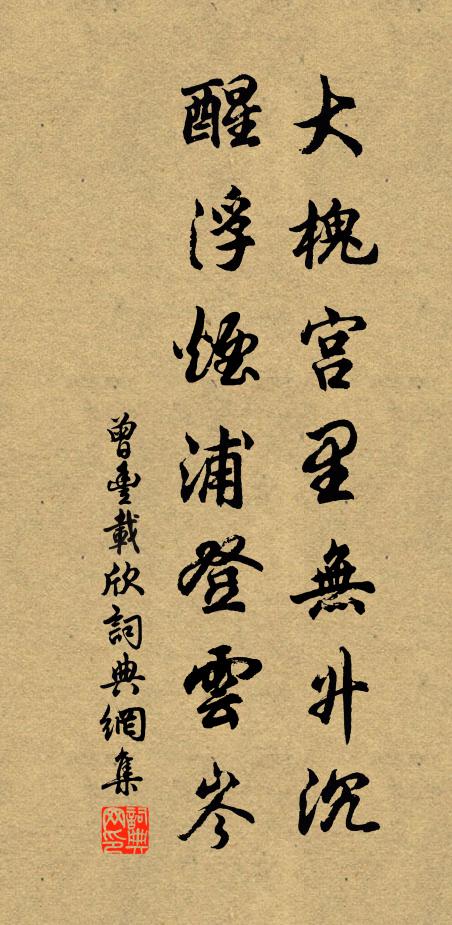 大槐宫里無升沉
醒浮煙浦登雲岑
曾豊載欣詞典網集
詞典網印